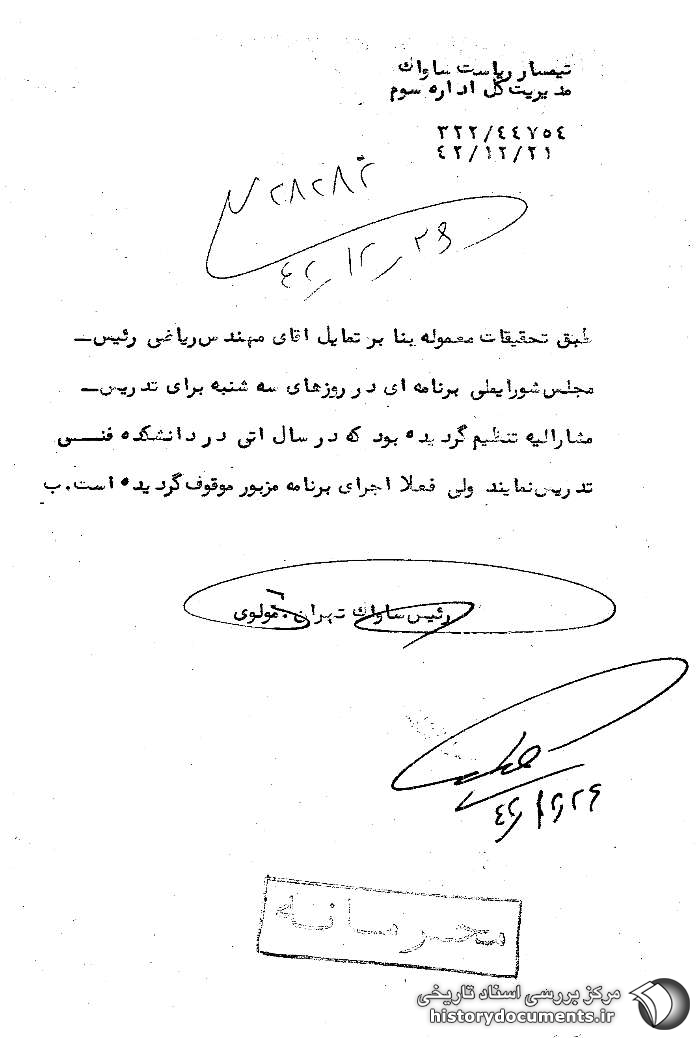 تیمسار ریاست ساواک
مدیریت کل اداره سوم
۳۲۲/٤٤۷٥٤
٤۲/۱۲/۲۱
۲۸۲۸۲
٤۲/۱۲/۲۶
طبق تحقیقات معموله بنا بر تمایل اقای مهندس ریاضی رئیس ـ
مجلس شورایملی برنامه ای در روزهای سه شنبه برای تدریس ـ
مشارالیه تنظیم گردیده بود که در سال اتی در دانشکده فنـــی
تدریس نمایند ولی فعلا اجرای برنامه مزبور موقوف گردیده است. ب
رئیس ساواک تهران. مولوی
٤۲/۱۲/۲۶
محرمانه
مرکز بررسی اسناد تاریخی
historydocuments.ir